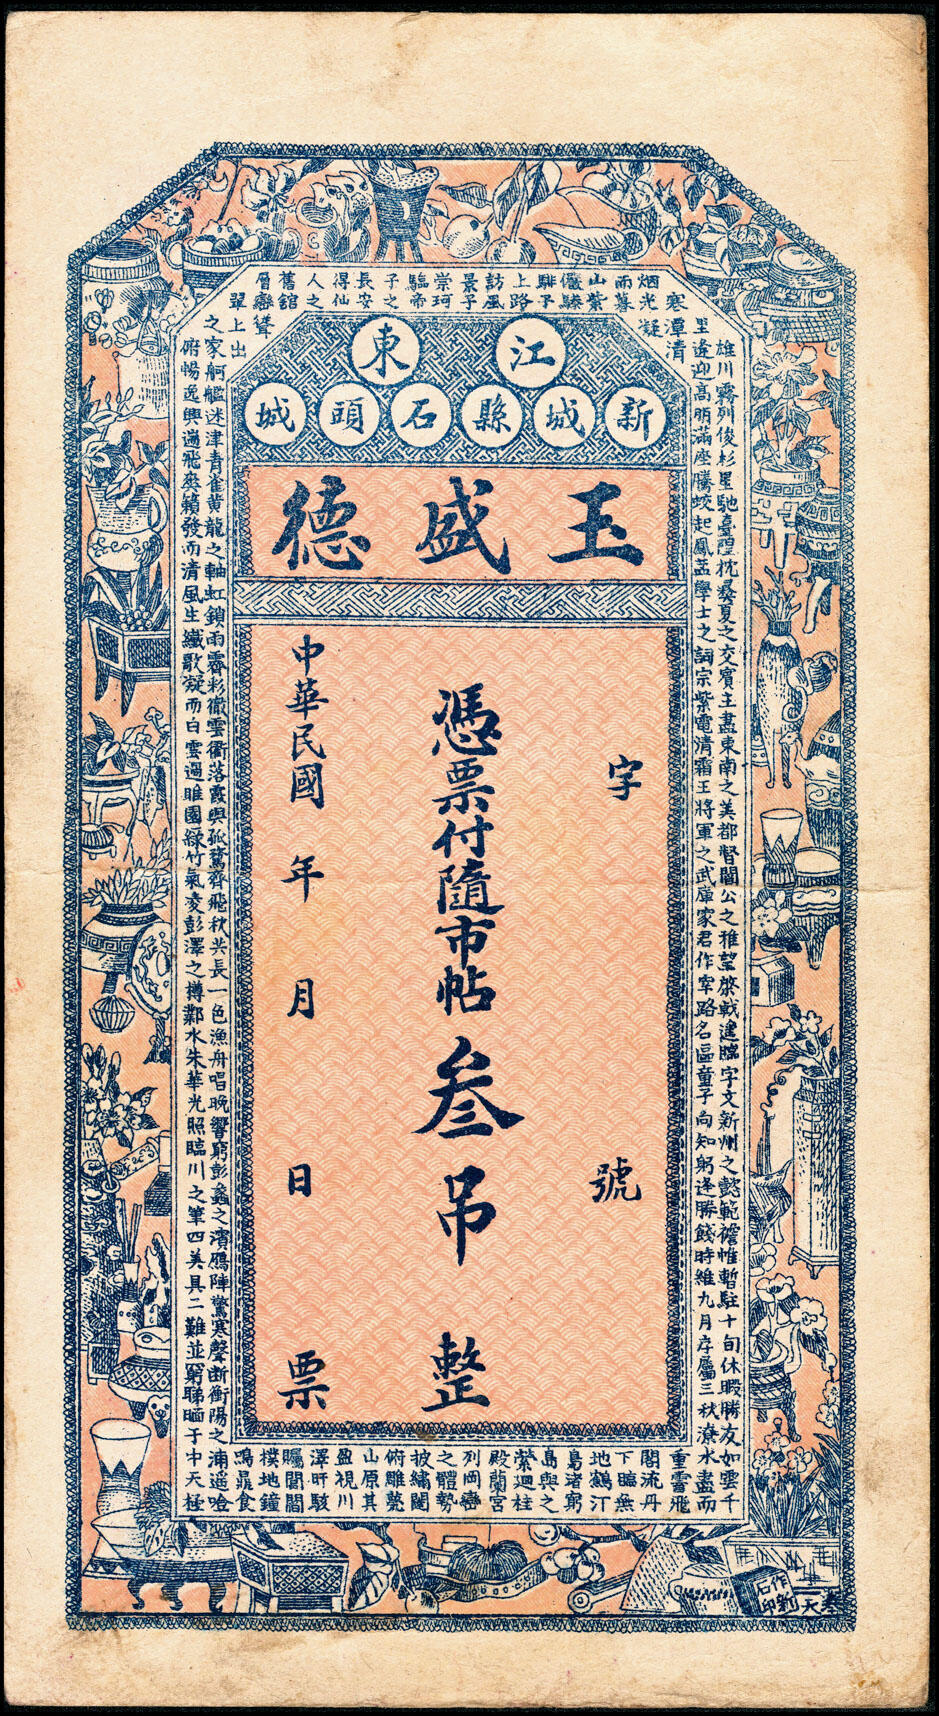 江東
新城縣石頭城
玉盛德
字 號
憑票付隨市帖叁吊整
中華民國 年 月 日 票
雄川霧列俊杉星馳臺隍枕夷夏之交賓主盡東南之美都督閻公之雅望棨戟遙臨宇文新州之懿範襜帷暫駐十旬休暇勝友如雲千
里逢迎高朋滿座騰蛟起鳳孟學士之詞宗紫電清霜王將軍之武庫家君作宰路名區童子何知躬逢勝餞時維九月序屬三秋潦水盡而
寒潭清
烟光凝
而暮
山紫
儼驂
騑于
上路
訪風
景子
崇珂
臨帝
子之
長安
得仙
人之
舊館
層巒聳
翠上出
重霄飛
閣流丹
下臨無
地鶴汀
鳧渚窮
島與之
縈迴桂
殿蘭宮
列岡巒
之體勢
披繡闥
俯雕甍
山原其
盈視川
澤盱駭
矚閭閻
撲地鐘
鳴鼎食
之家舸艦迷津青雀黃龍之軸虹銷雨霽彩徹雲衢落霞與孤鶩齊飛秋共長一色漁舟唱晚響窮彭蠡之濱鴈陣驚寒聲斷衡陽之浦遥吟
俯暢逸興遄飛爽籟發而清風生纖歌凝而白雲遏睢園綠竹氣凌彭澤之樽鄴水朱華光照臨川之筆四美具二難並窮睇眄于中天極
奉天
作新
石印